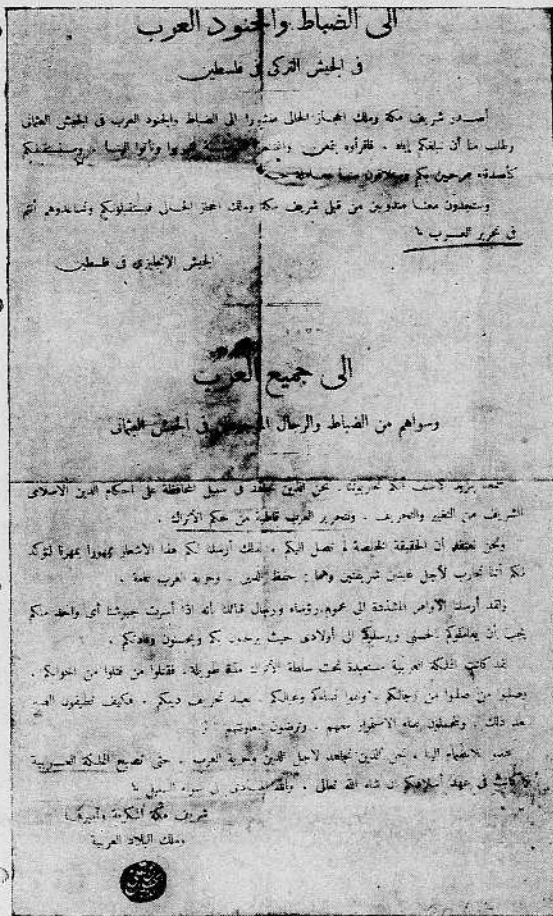 الى الضباط والجنود العرب
فى الجيش التركى فى فلسطين
أصدر شريف مكة وملك الحجاز الحالى منشورا الى الضباط والجنود العرب فى الجيش العثمانى
وطلب منا أن نبلغكم إياه . فاقرأوه بتمعن وتأتوا الينا . وسنستقبلكم
كأصدقاء مرحبين بكم وستلاقون منا معاملة حسنة
وستجدون معنا مندوبين من قبل شريف مكة وملك الحجاز الحالى فيستقبلونكم وتساعدوهم أنتم
فى تحرير العرب
الجيش الانجليزى فى فلسطين
الى جميع العرب
وسواهم من الضباط والرجال الموجودين فى الجيش العثمانى
نسمع بمزيد الأسف أنكم تحاربوننا . نحن الذين نجاهد فى سبيل المحافظة على أحكام الدين الاسلامى
الشريف من التغيير والتحريف . ولتحرير العرب قاطبة من حكم الأتراك .
ونحن نعتقد أن الحقيقة الخالصة لم تصل اليكم . لذلك أرسلنا لكم هذا الاشعار ممهورا بمهرنا لنؤكد
لكم أننا نحارب لأجل غايتين شريفتين وهما : حفظ الدين . وحرية العرب عامة .
ولقد أرسلنا الأوامر المشددة الى عموم رؤساء ورجال قبائلنا بأنه اذا أسرت جيوشنا أى واحد منكم
يجب أن يعاملوكم بالحسنى ويرسلوكم الى أولادى حيث يرحبون بكم ويحسنون وفادتكم .
لقد كانت المملكة العربية مستعبدة تحت سلطة الأتراك مدة طويلة . فقتلوا من قتلوا من اخوانكم .
وصلبوا من صلبوا من رجالكم . ونفوا نساءكم وعيالكم . بعد تحريف دينكم . فكيف تطيقون الصبر
بعد ذلك . وتتحملون عناء الاستمرار معهم . وترضون بمعاونتهم
للانضمام الينا . نحن الذين نجاهد لأجل الدين وحرية العرب . حتى تصبح المملكة العربية
كما كانت فى عهد أسلافكم ان شاء الله تعالى . والله الهادى الى سواء السبيل
شريف مكة المكرمة وأميرها
وملك البلاد العربية